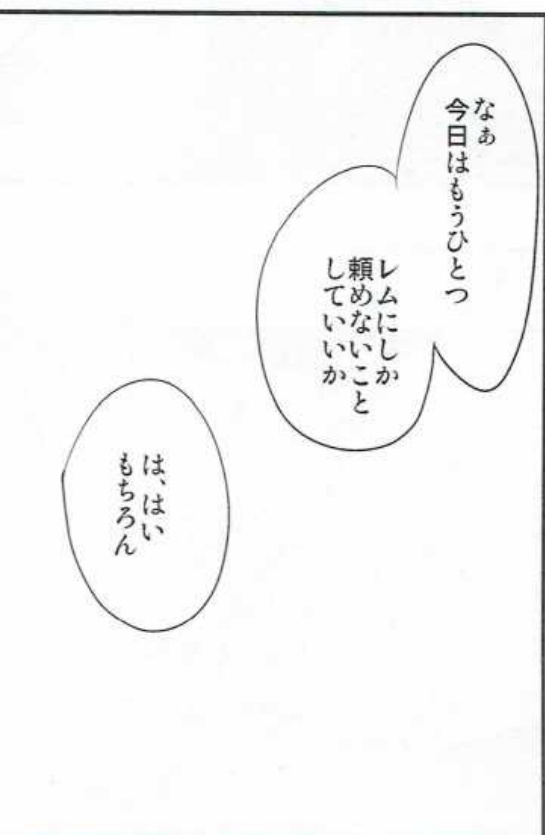 なぁ
今日はもうひとつ
レムにしか
頼めないこと
していいか
は、はい
もちろん